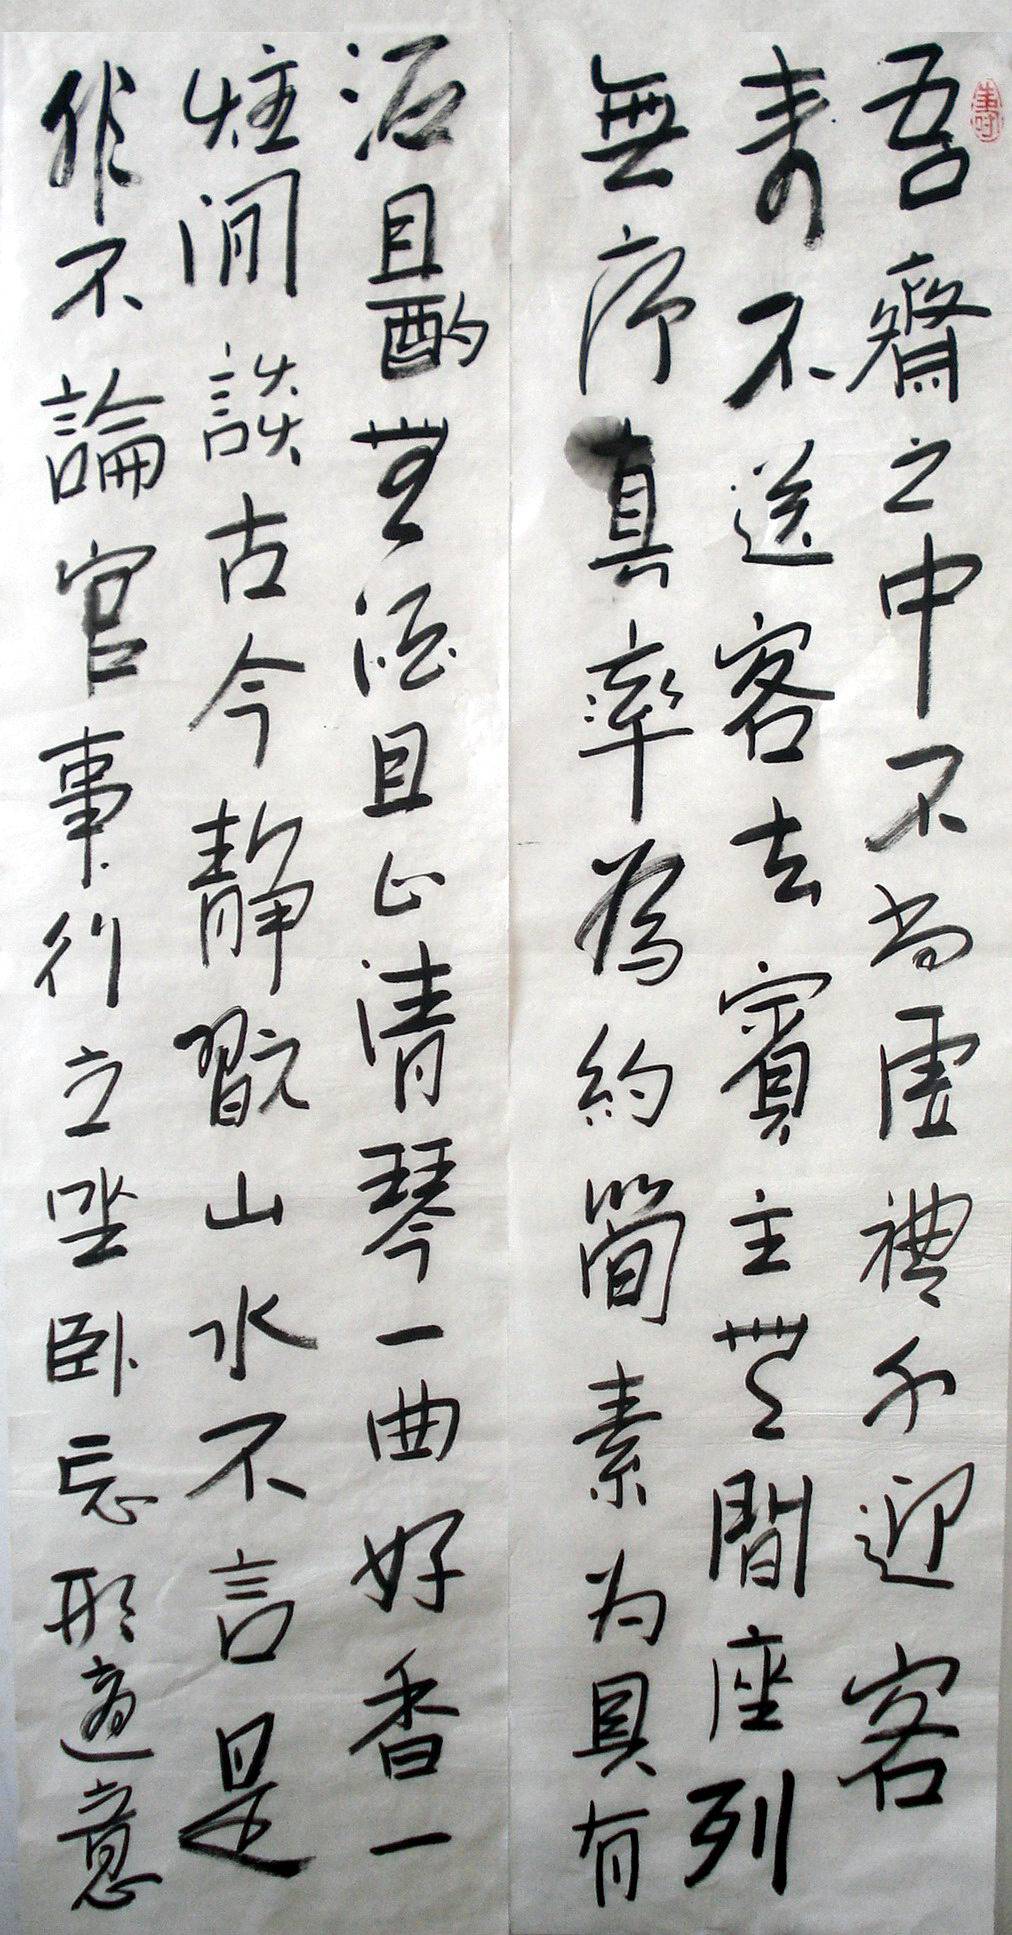 吾齋之中不尚虛禮不迎客
來不送客去賓主無間座列
無序真率為約簡素为具有
酒且酌無酒且止清琴一曲好香一
炷閒談古今靜翫山水不言是
非不論官事行立坐臥忘形適意